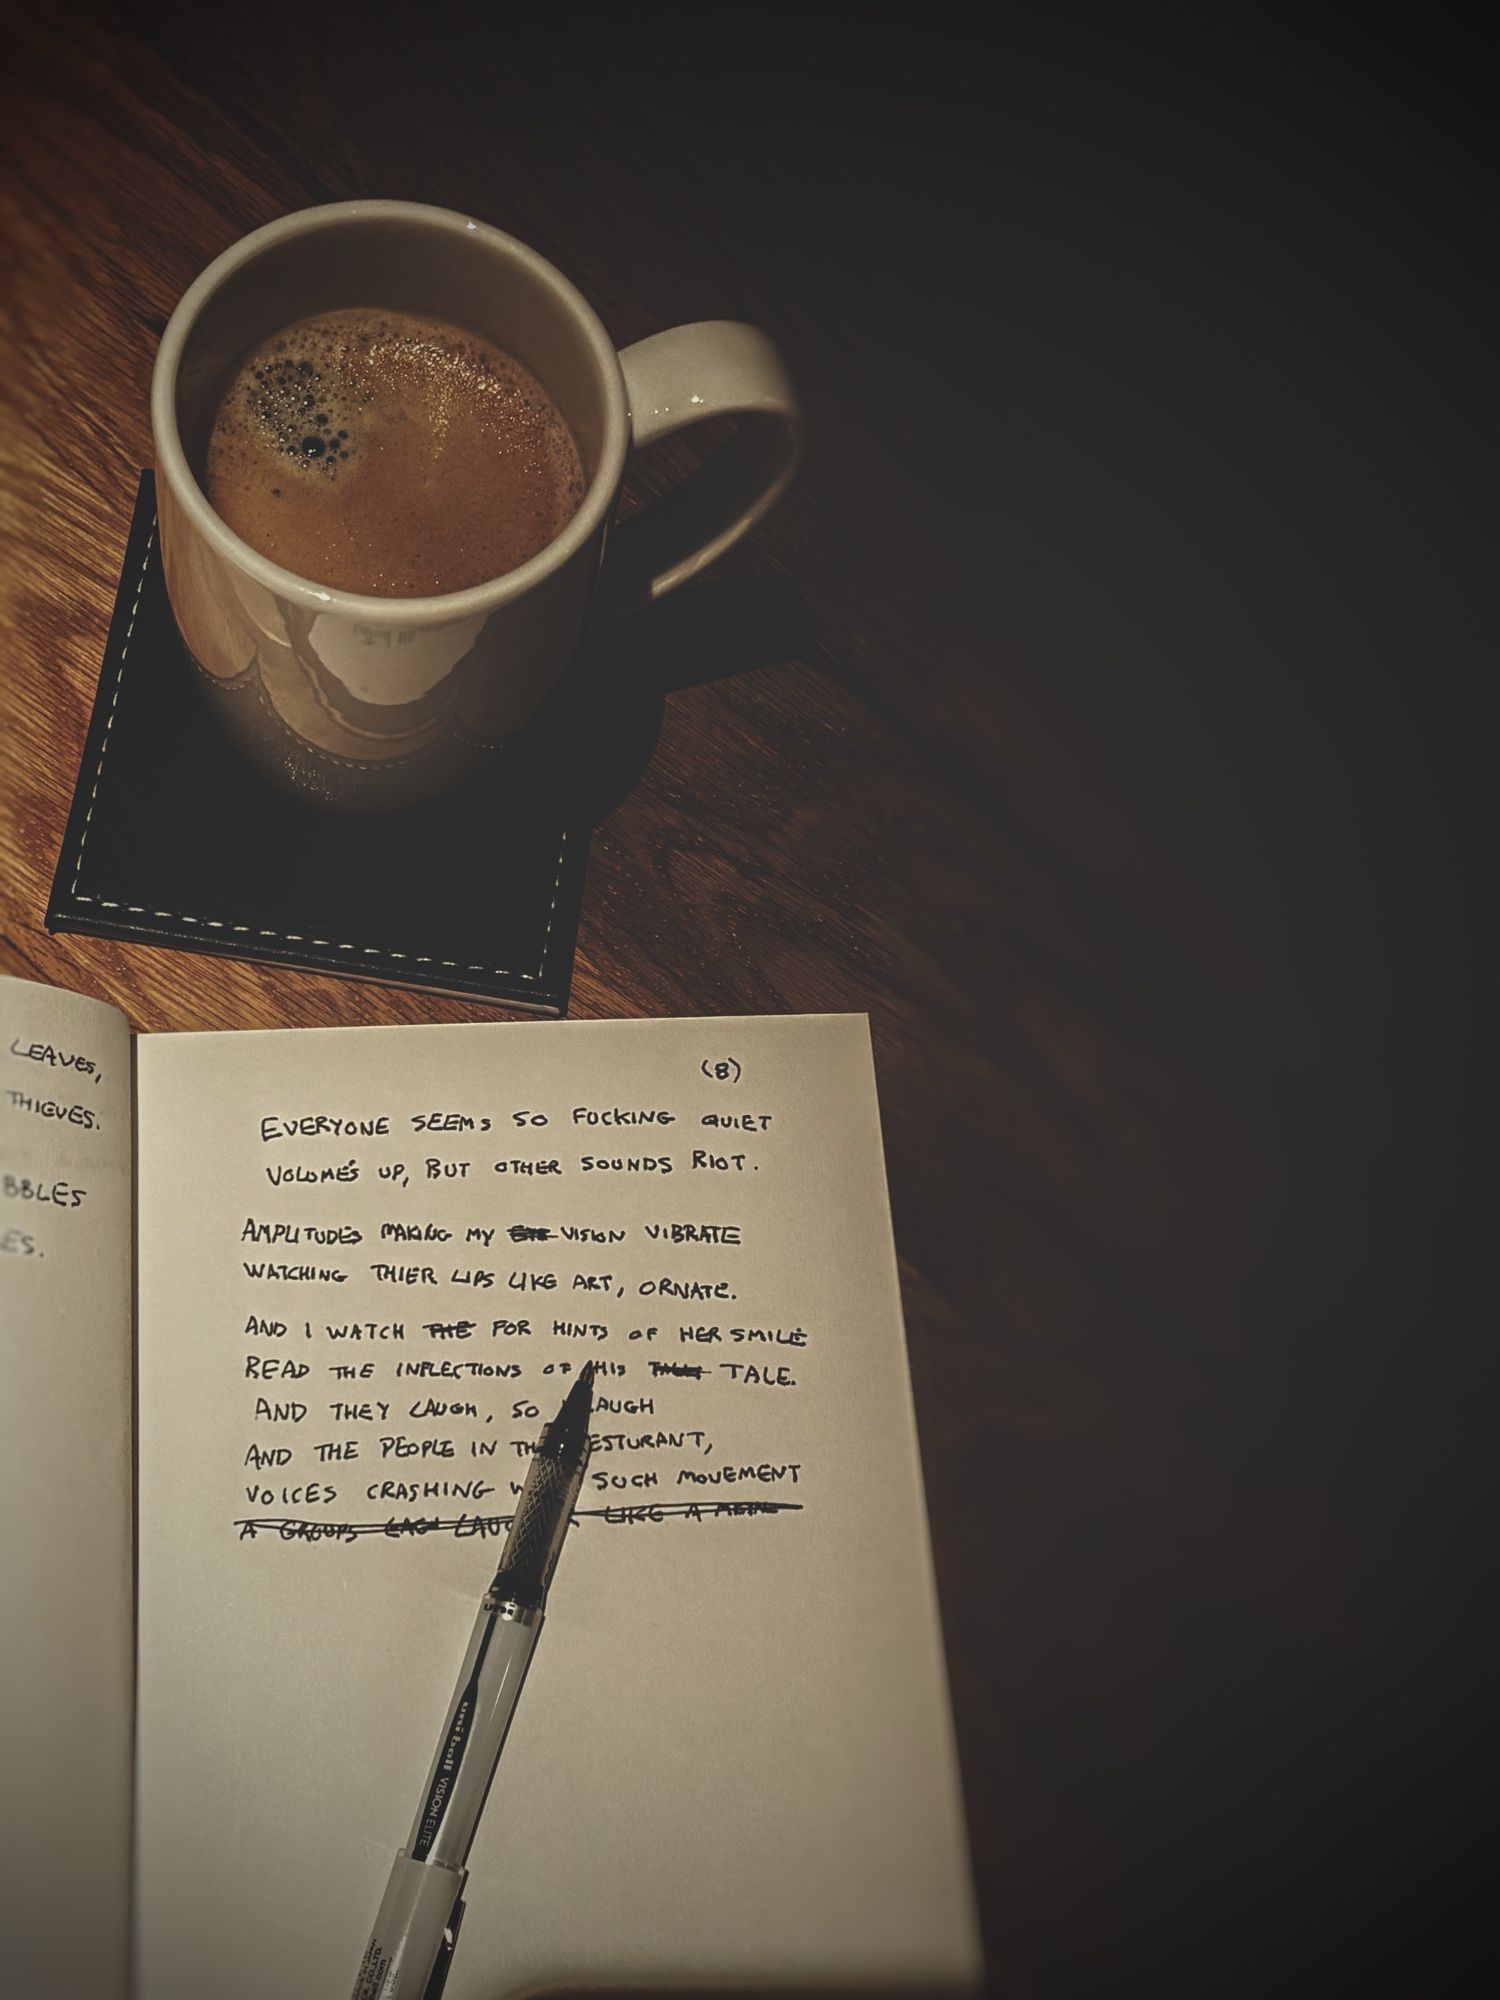 LEAVES,
THIEVES.
BBLES
ES.
(8)
EVERYONE SEEMS SO FUCKING QUIET
VOLUME'S UP, BUT OTHER SOUNDS RIOT.
AMPLITUDES MAKING MY VISION VIBRATE
WATCHING THIER LIPS LIKE ART, ORNATE.
AND I WATCH THE FOR HINTS OF HER SMILE
READ THE INFLECTIONS OF HIS TALE.
AND THEY LAUGH, SO LAUGH
AND THE PEOPLE IN TH ESTURANT,
VOICES CRASHING W SUCH MOVEMENT
A GROUPS LAU LIKE A
uni
uniball VISION ELITE